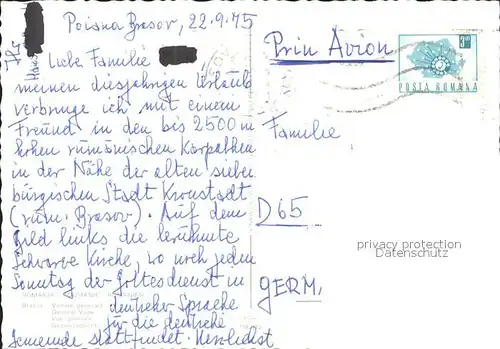 Poiana Brasov, 22.9.75
Liebe Familie
meinen diesjährigen Urlaub
verbringe ich mit einem
Freund in den bis 2500 m
hohen rumänischen Karpathen
in der Nähe der alten sieben
bürgischen Stadt Kronstadt
(rum. Brasov). Auf dem
Bild links die berühmte
Schwarze Kirche, wo noch jeden
Sonntag der Gottesdienst in
deutscher Sprache
für die deutsche
Gemeinde stattfindet. Herzlichst
Prin Avion
POSTA ROMANA
Familie
D65
GERM.
privacy protection
Datenschutz